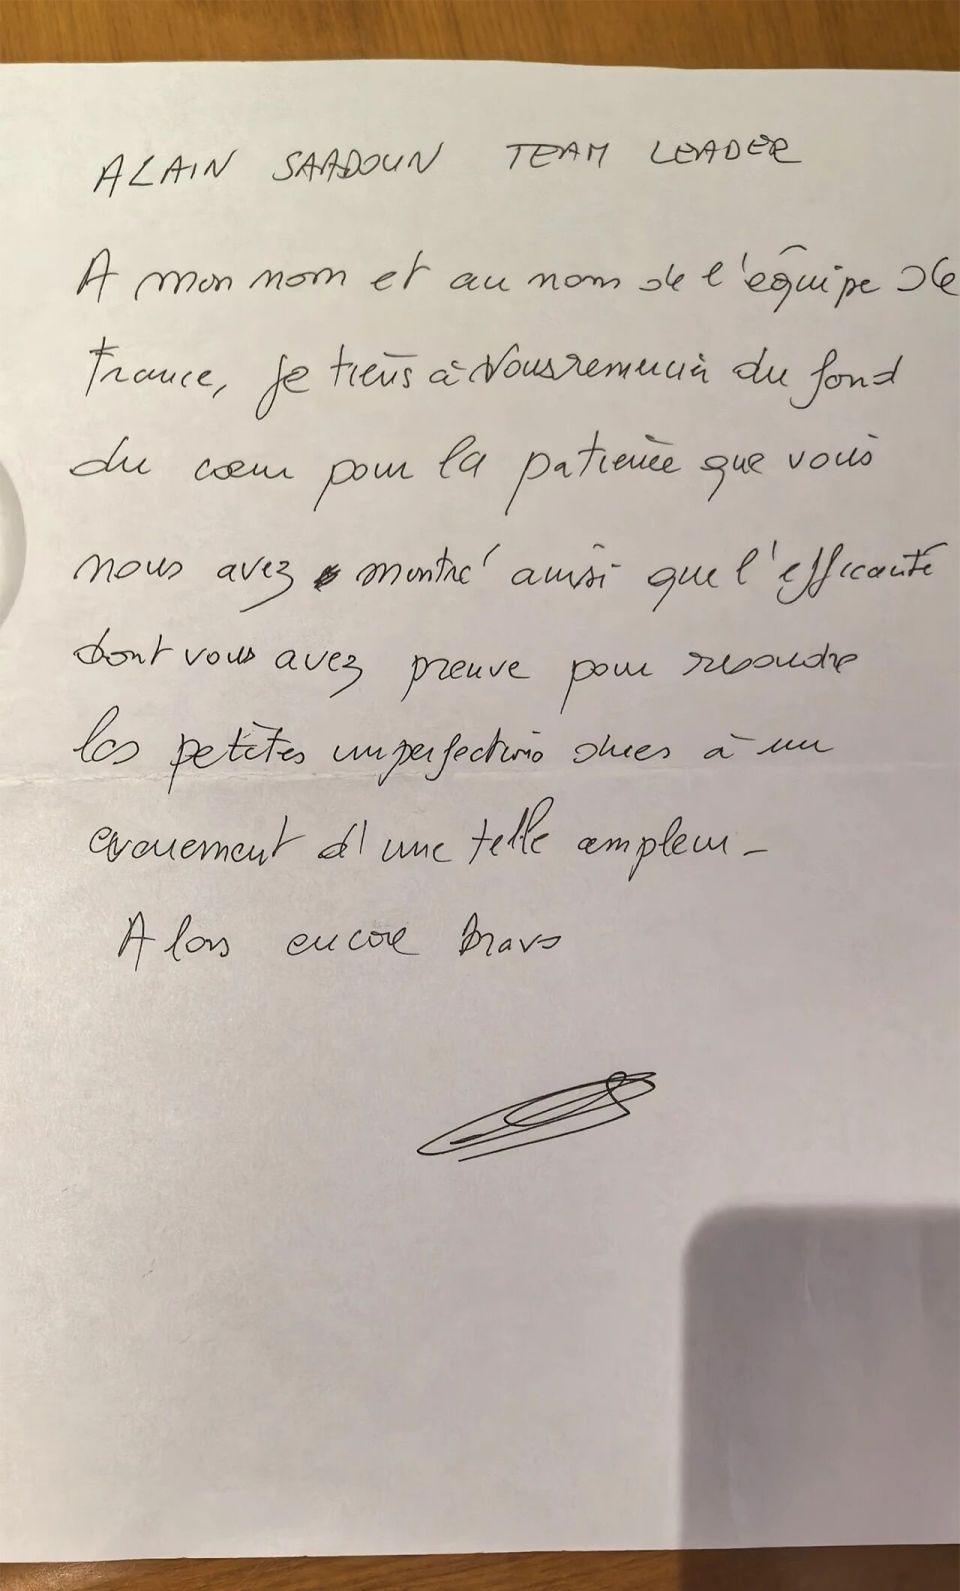 ALAIN SAADOUN TEAM LEADER
A mon nom et au nom de l'équipe de
France, je tiens à vous remercier du fond
du cœur pour la patience que vous
nous avez montré ainsi que l'efficacité
dont vous avez preuve pour resoudre
les petites imperfections dues à un
evenement d'une telle ampleur -
Alors encore bravo